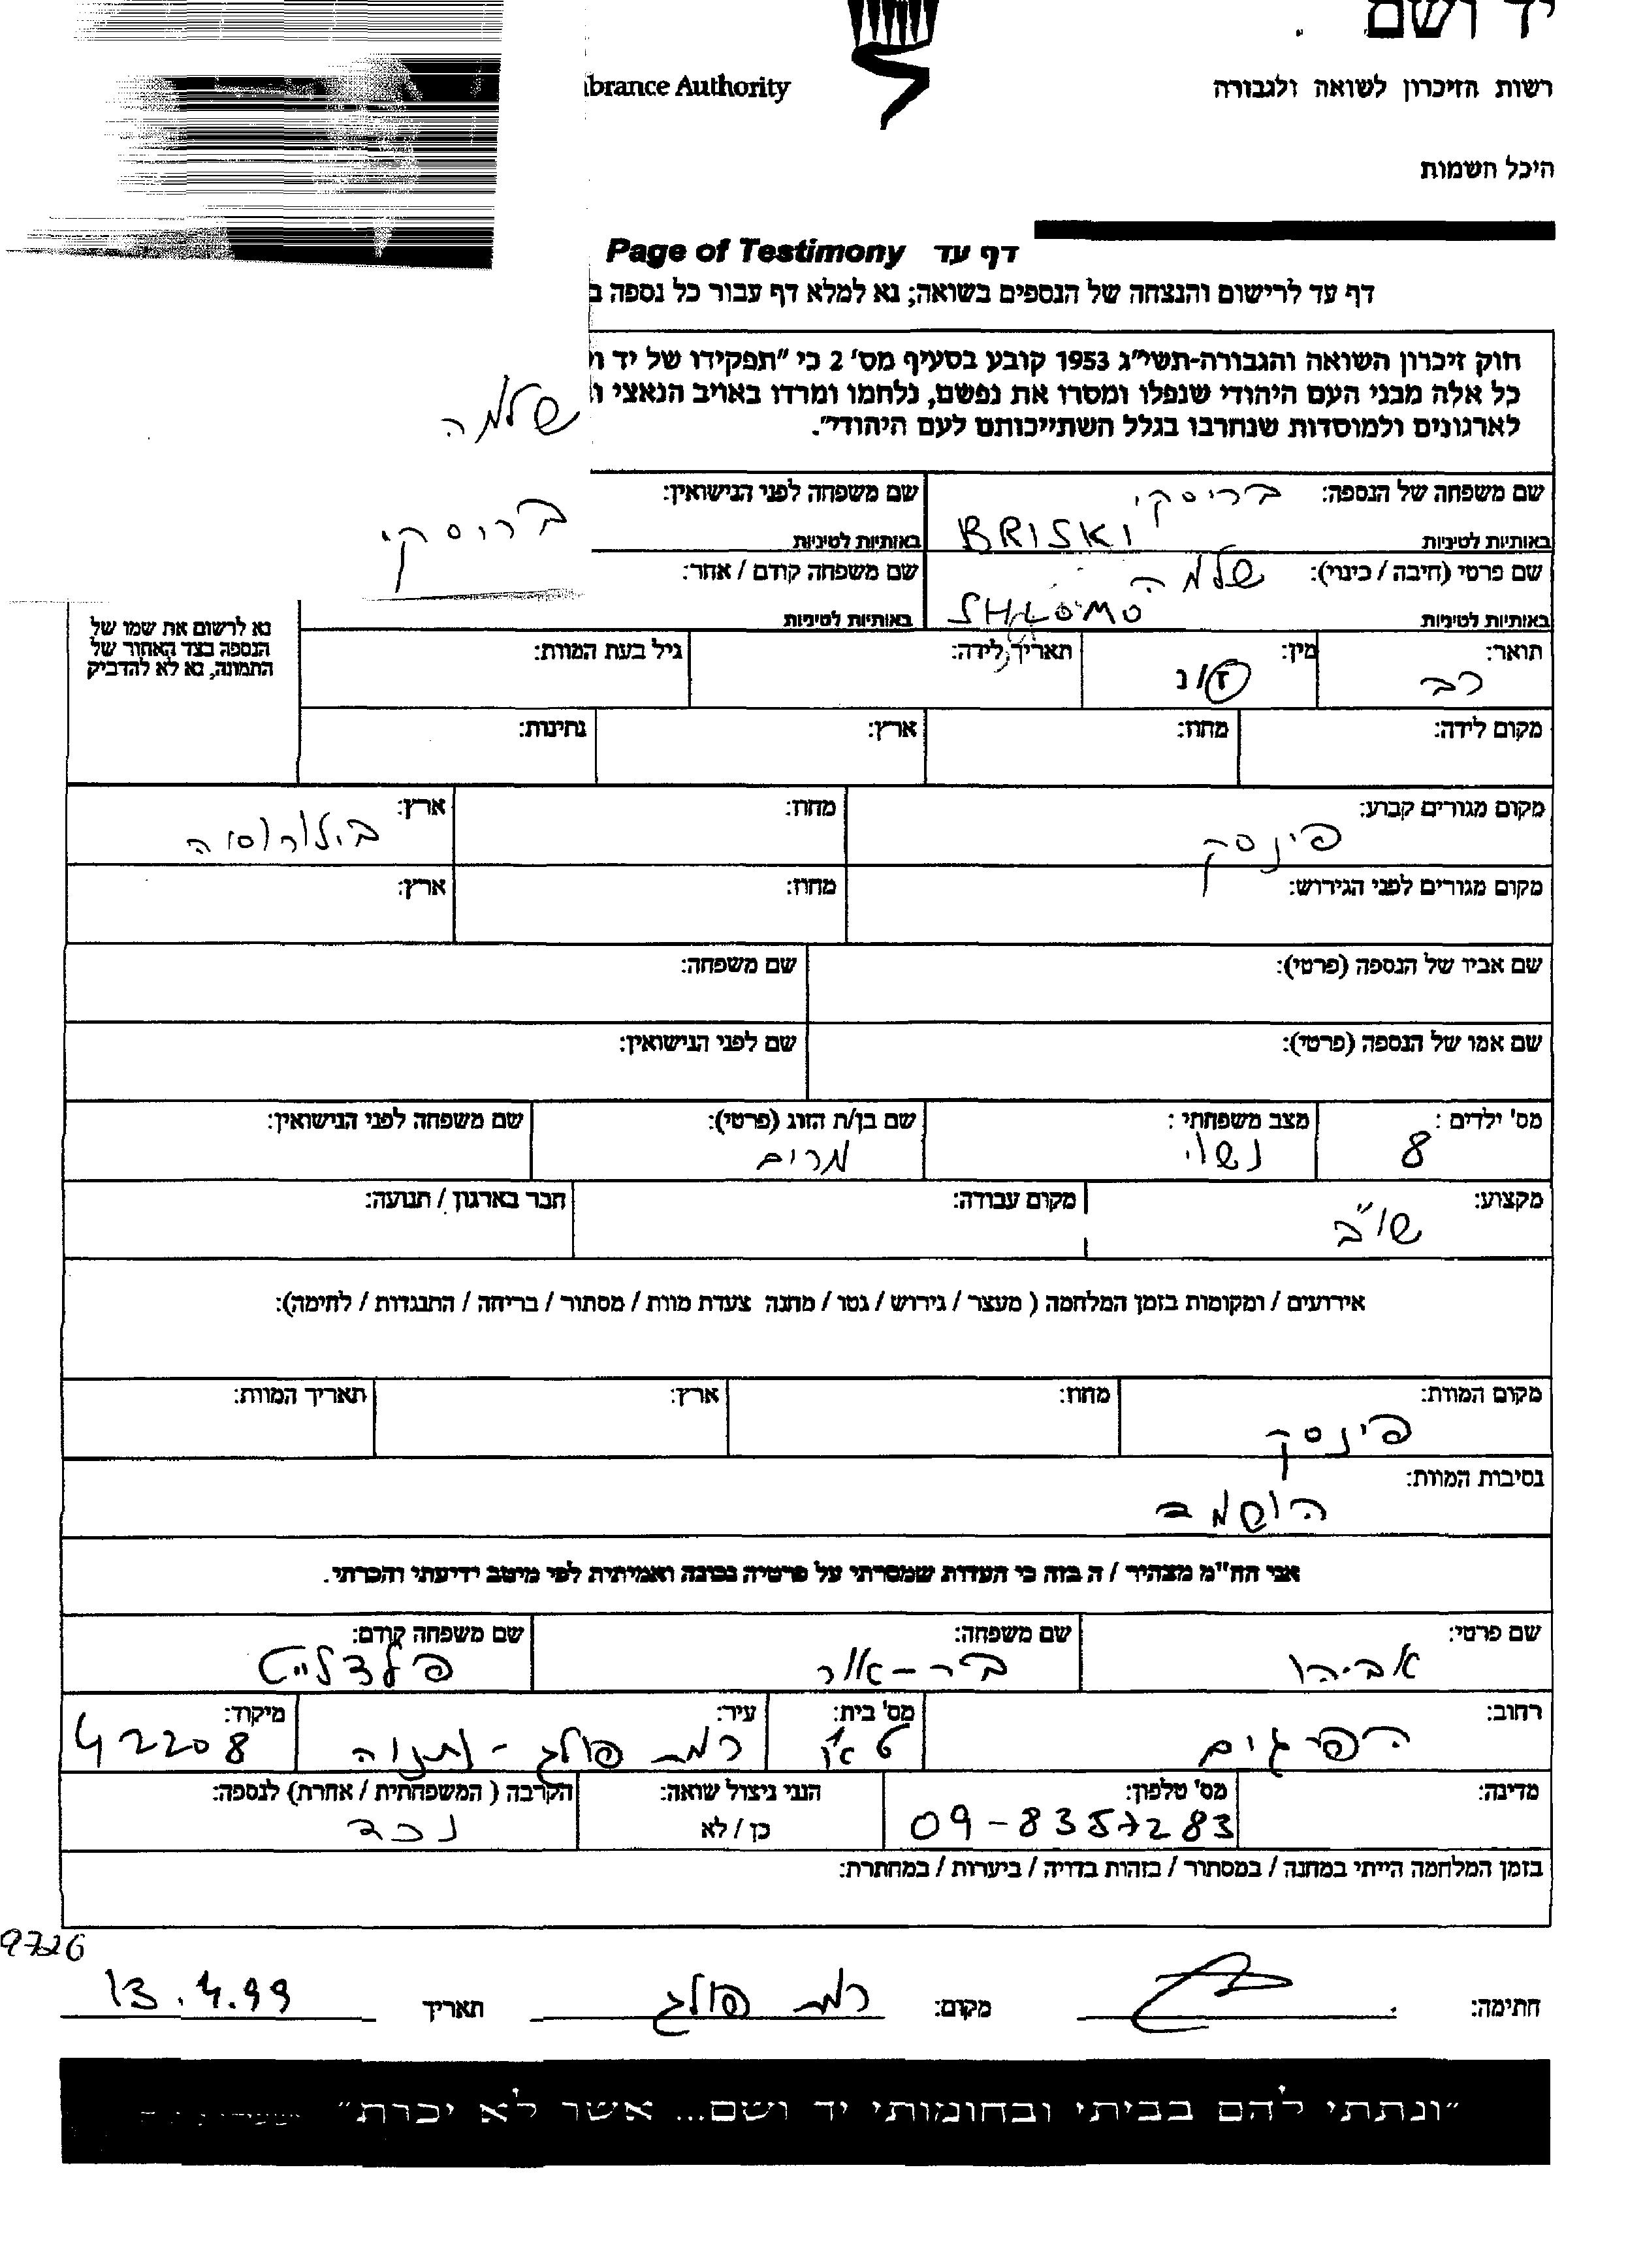 יד ושם
רשות הזיכרון לשואה ולגבורה
brance Authority
היכל השמות
Page of Testimony דף עד
דף עד לרישום והנצחה של הנספים בשואה; נא למלא דף עבור כל נספה ב
חוק זיכרון השואה והגבורה-תשי"ג 1953 קובע בסעיף מס' 2 כי "תפקידו של יד ו
כל אלה מבני העם היהודי שנפלו ומסרו את נפשם, נלחמו ומרדו באויב הנאצי ו
לארגונים ולמוסדות שנחרבו בגלל השתייכותם לעם היהודי".
שלמה
בריסקי
שם משפחה של הנספה: בריסקי
באותיות לטיניות BRISKI
שם משפחה לפני הנישואין:
באותיות לטיניות
שם פרטי (חיבה / כינוי): שלמה
באותיות לטיניות SHLOMO
שם משפחה קודם / אחר:
באותיות לטיניות
נא לרשום את שמו של
הנספה בצד האחור של
התמונה, נא לא להדביק
תואר: רב
מין: ז/נ
תאריך לידה:
גיל בעת המוות:
מקום לידה:
מחוז:
ארץ:
נתינות:
מקום מגורים קבוע: פינסק
מחוז:
ארץ: בילורוסיה
מקום מגורים לפני הגירוש:
מחוז:
ארץ:
שם אביו של הנספה (פרטי):
שם משפחה:
שם אמו של הנספה (פרטי):
שם לפני הנישואין:
מס' ילדים: 8
מצב משפחתי: נשוי
שם בן/ת הזוג (פרטי): מרים
שם משפחה לפני הנישואין:
מקצוע: שו"ב
מקום עבודה:
חבר בארגון / תנועה:
אירועים / ומקומות בזמן המלחמה ( מעצר / גירוש / גטו / מחנה צעדת מוות / מסתור / בריחה / התנגדות / לחימה):
מקום המוות: פינסק
מחוז:
ארץ:
תאריך המוות:
נסיבות המוות: הושמד
אני הח"מ מצהיר / ה בזה כי העדות שמסרתי על פרטיה נכונה ואמיתית לפי מיטב ידיעתי והכרתי.
שם פרטי: אביהו
שם משפחה: בר-אור
שם משפחה קודם: פלדלייט
רחוב:
מס' בית:
עיר: רמת פולג - נתניה
מיקוד: 42208
מדינה:
מס' טלפון: 09-8357283
הנני ניצול שואה: כן / לא
הקרבה ( המשפחתית / אחרת) לנספה: נכד
בזמן המלחמה הייתי במחנה / במסתור / בזהות בדויה / ביערות / במחתרת:
9726
חתימה:
מקום: רמת פולג
תאריך 13.4.99
"ונתתי להם בביתי ובחומותי יד ושם... אשר לא יכרת"